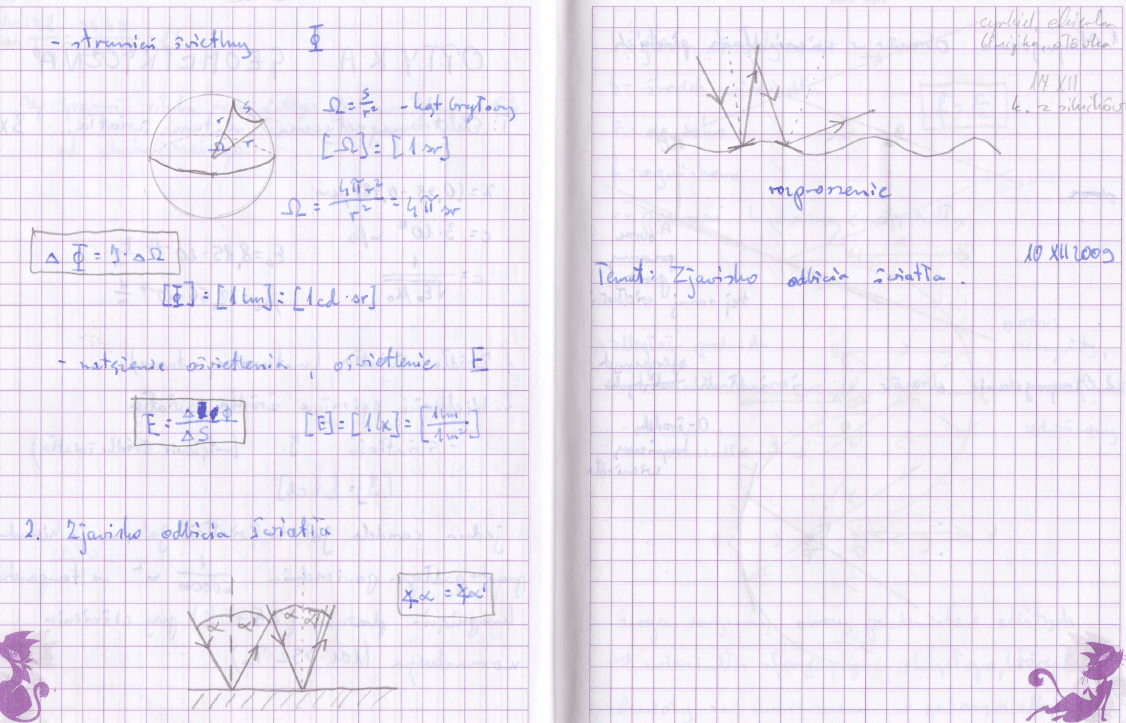 - strumień świetlny Φ
S
r
Ω
r
Ω = S/r² - kąt bryłowy
[Ω] = [1 sr]
Ω = 4πr²/r² = 4π sr
Δ Φ = J · ΔΩ
[Φ] = [1 lm] = [1 cd · sr]
- natężenie oświetlenia, oświetlenie E
E = ΔΦ/ΔS
[E] = [1 lx] = [1 lm/1 m²]
2. Zjawisko odbicia światła
∢α = ∢α'
α α' α α'
cyrkiel, ekierka
linijka, ołówka
17 XII
k. z silników
rozproszenie
10 XII 2009
Temat: Zjawisko odbicia światła.